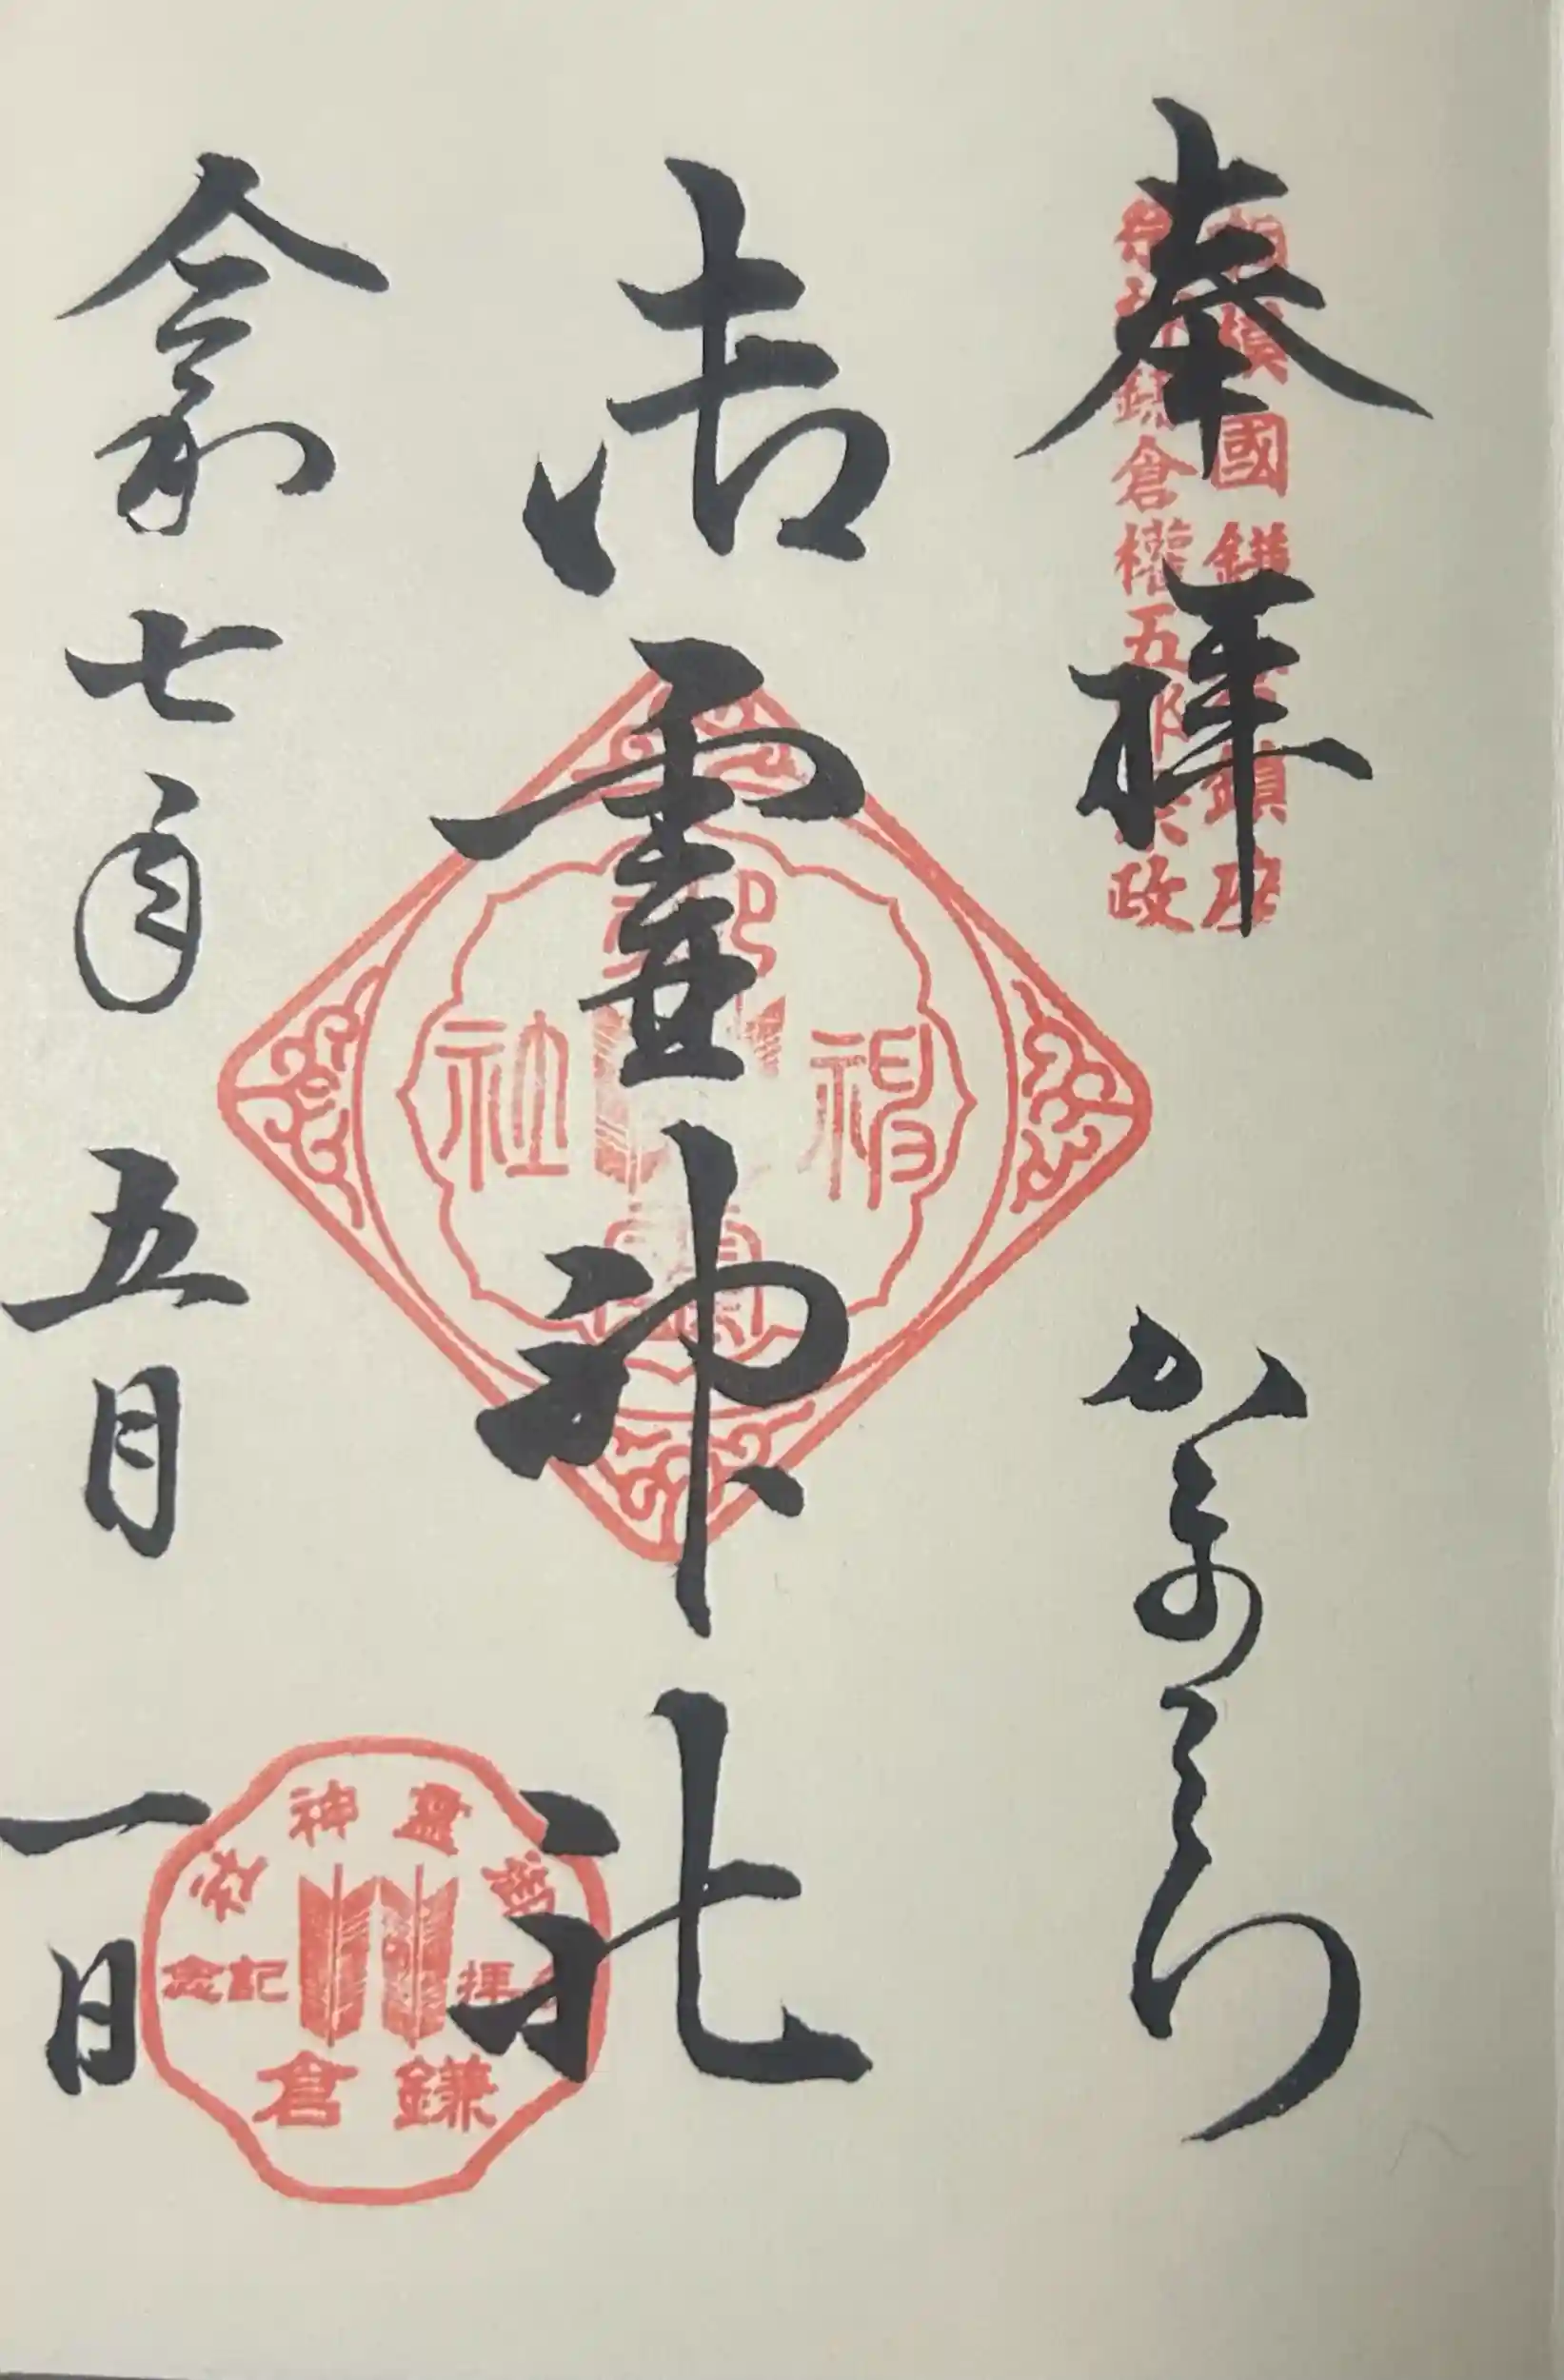 奉拝 かまくら
相模國鎌倉鎮座
祭神鎌倉權五郎景政
御霊神社
神社
令和七年 五月 一日
御靈神社
参拝記念
鎌倉